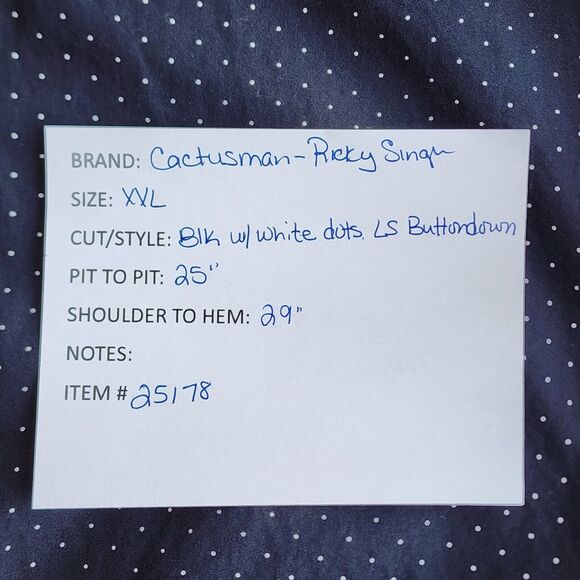 BRAND: Cactusman-Ricky Singh
SIZE: XXL
CUT/STYLE: Blk w/ white dots. LS Buttondown
PIT TO PIT: 25"
SHOULDER TO HEM: 29"
NOTES:
ITEM # 25178